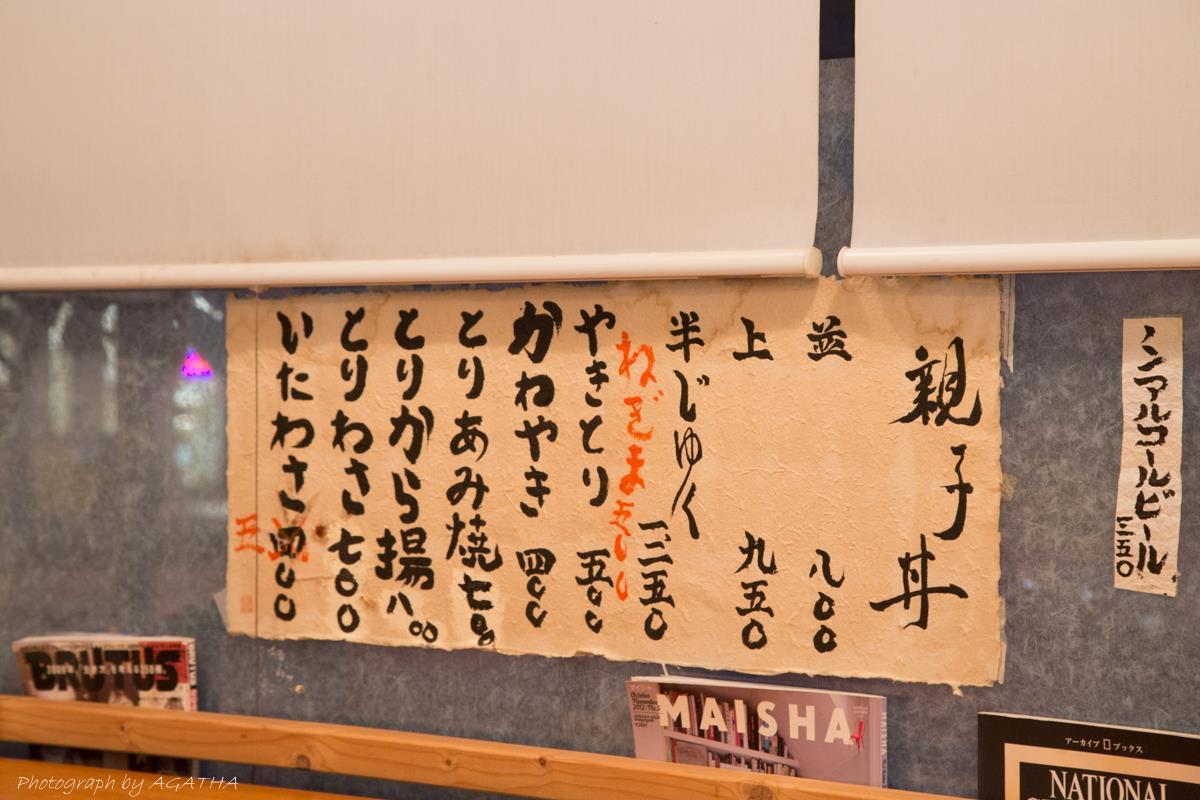 親子丼
並 八〇〇
上 九五〇
半じゅく
ねぎま 五〇〇
やきとり 五〇〇
かわやき 四〇〇
とりあみ焼 七〇〇
とりから揚 八〇〇
とりわさ 七〇〇
いたわさ 四〇〇
ノンアルコールビール 三五〇
BRUTUS
MAISHA
アーカイブ ブックス
NATIONAL
Photograph by AGATHA